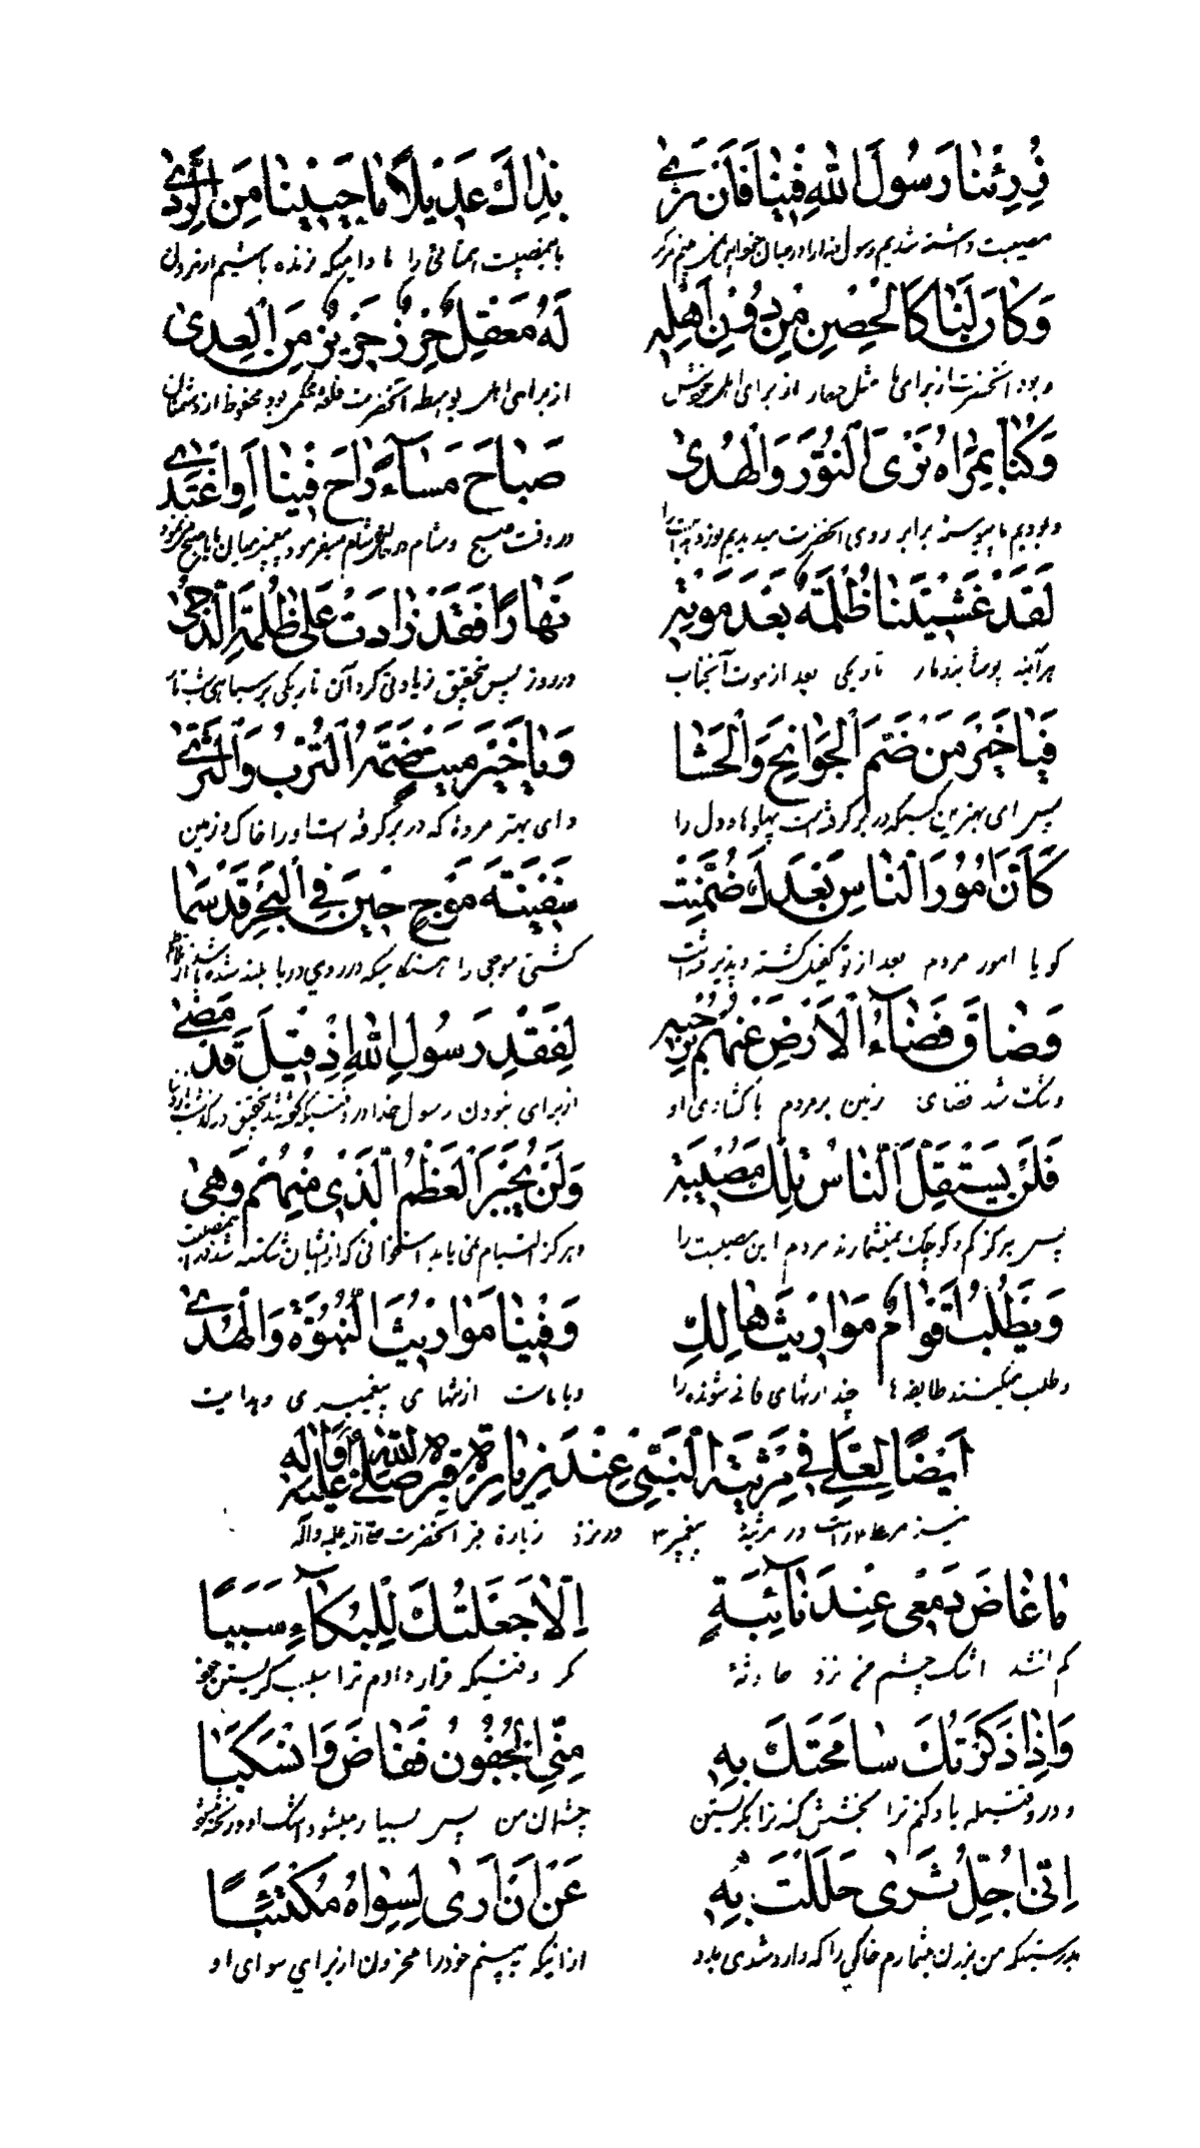 رُزِئْنَا رَسُولَ اللهِ فِينَا فَلَنْ نَرَىٰ بِذَاكَ عَدِيلًا مَا حَيِينَا مِنَ الرَّدَىٰ
مصیبت داشته شدیم رسول خدا را در میان باین مصیبت همتائی را ما دامیکه زنده باشیم از مردن
وَكَانَ لَنَا كَالْحِصْنِ مِنْ دُونِ أَهْلِهِ لَهُ مَعْقِلٌ حِرْزٌ حَرِيزٌ مِنَ الْعِدىٰ
و بود آنحضرت از برای ما مثل حصار از برای اهل خویش از برای اهل بواسطه آنحضرت قلعه محکم بود محفوظ از دشمنان
وَكُنَّا بِمَرْاٰهُ نَرَى النُّورَ وَالْهُدىٰ صَبَاحَ مَسَاءً رَاحَ فِينَا اَوِ اغْتَدىٰ
و بودیم ما پیوسته برابر روی آنحضرت میدیدیم نور و هدایت را در وقت صبح و شام
لَقَدْ غَشِيَتْنَا ظُلْمَةٌ بَعْدَ مَوْتِهِ نَهَارًا فَقَدْ زَادَتْ عَلَى ظُلْمَةِ الدُّجىٰ
هرآینه پوشانید ما را تاریکی بعد از موت آنجناب در روز پس بتحقیق زیادتی کرد آن تاریکی بر سیاهی شب تار
فَيَا خَيْرَ مَنْ ضَمَّ الْجَوَانِحَ وَالْحَشَا وَيَا خَيْرَ مَيِّتٍ ضَمَّهُ التُّرْبُ وَالثَّرىٰ
پس ای بهترین کسیکه در بر گرفته است پهلوها و دل را و ای بهتر مردهٔ که در بر گرفته است او را خاک و زمین
كَأَنَّ اُمُورَ النَّاسِ بَعْدَكَ ضُمِّنَتْ سَفِينَةَ مَوْجٍ حِينَ فِي الْبَحْرِ قَدْ سَمَا
گویا امور مردم بعد از تو کفیل گشته و پذیرفته است کشتی موجی را هنگامیکه در روی دریا بلند شده
وَضَاقَ فَضَاءُ الْاَرْضِ عَنْهُمْ بِرُحْبِهِ لِفَقْدِ رَسُولِ اللهِ اِذْ قِيلَ قَدْ مَضىٰ
و تنگ شد فضای زمین بر مردم با گشادی او از برای نبودن رسول خدا در وقتیکه گفته شد بتحقیق درگذشت
فَلَنْ يَسْتَقِلَّ النَّاسُ تِلْكَ مُصِيبَةً وَلَنْ يُجْبَرَ الْعَظْمُ الَّذِي مِنْهُمْ وَهىٰ
پس هرگز کم و کوچک نمیشمارند مردم این مصیبت را و هرگز التیام نمی یابد استخوانی که از ایشان شکسته شد
وَيَطْلُبُ اَقْوَامٌ مَوَارِيثَ هَالِكٍ وَفِينَا مَوَارِيثُ النُّبُوَّةِ وَالْهُدىٰ
و طلب میکنند طایفه ها چند ارثهای فانی شونده را و با ماست ارثهای پیغمبری و هدایت
اَيْضًا لِعَلِيٍّ فِي مَرْثِيَةِ النَّبِيِّ عِنْدَ زِيَارَةِ قَبْرِهِ صَلَّى اللهُ عَلَيْهِ وَاٰلِهِ
نیز مر علی راست در مرثیهٔ پیغمبر در نزد زیارة قبر آنحضرت صلی الله علیه وآله
مَا غَاضَ دَمْعِي عِنْدَ نَائِبَةٍ اِلَّا جَعَلْتُكَ لِلْبُكَاءِ سَبَبًا
کم نشد اشک چشم من نزد حادثهٔ مگر وقتیکه قرار دادم ترا سبب گریستن خود
وَاِذَا ذَكَرْتُكَ سَامَحَتْكَ بِهِ مِنِّي الْجُفُونُ فَفَاضَ وَانْسَكَبَا
و در وقتیکه یاد کنم ترا بخشش کند ترا بگریستن چشمان من پس بسیار میشود اشک او و ریخته میشود
اِنِّي اُجِلُّ ثَرىٰ حَلَلْتَ بِهِ عَنْ اَنْ اَرىٰ لِسِوَاهُ مُكْتَئِبًا
بدرستیکه من بزرگ میشمارم خاکی را که وارد شدی بدو از اینکه ببینم خود را محزون از برای سوای او